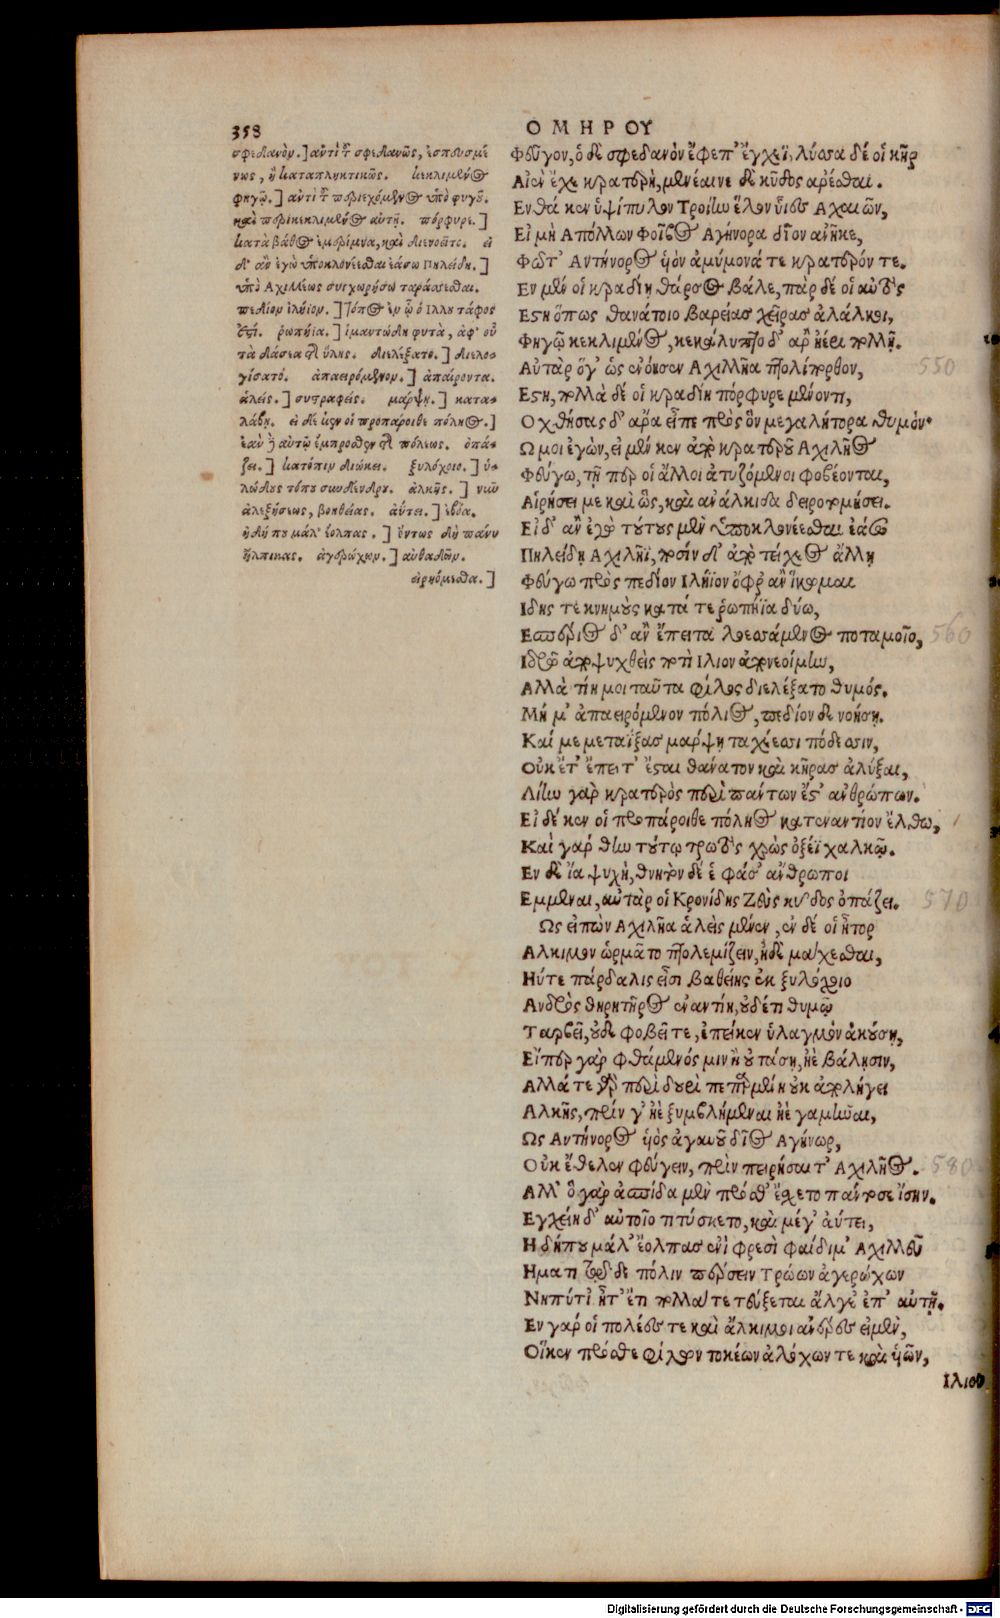 358
ΟΜΗΡΟΥ
σφεδανὸν.] ἀντὶ τοῦ σφεδανῶς, ἐσπευσμέ
νως, ἢ καταπληκτικῶς. κεκλιμένος
φηγῷ.] ἀντὶ τοῦ περιεχόμενος ὑπὸ φυγοῦ.
καὶ περικεκλιμένος αὐτῇ. πόρφυρε.]
κατὰ βάθος ἐμερίμνα, καὶ διενοεῖτο. εἰ
δ' ἂν ἐγὼ ὑποκλονέεσθαι ἐάσω Πηλείδῃ.]
ὑπὸ Ἀχιλλέως συγχωρήσω ταράσσεσθαι.
πεδίον ἰλήϊον.] τόπος ἐν ᾧ ὁ Ἴλου τάφος
ἐστί. ῥωπήϊα.] ἱμαντώδη φυτὰ, ἀφ' οὗ
τὰ δάσεα τῆς ὕλης. διελέξατο.] διελο-
γίσατο. ἀπαειρόμενον.] ἀπαίροντα.
ἀλείς.] συστραφείς. μάρψῃ.] κατα-
λάβῃ. εἰ δέ κεν οἱ προπάροιθε πόληος.]
ἐὰν δὲ αὐτῷ ἔμπροσθεν τῆς πόλεως. ὀπά-
ζει.] κατόπιν διώκει. ξυλόχοιο.] ὑ-
λώδους τόπου συνδένδρου. ἀλκῆς.] νῦν
ἀλεξήσεως, βοηθείας. ἀΰτει.] ἐβόα.
ἦ δή που μάλ' ἔολπας.] ὄντως δὴ πάνυ
ἤλπικας. ἀγερώχων.] αὐθαδῶν.
εἰρηόμεσθα.]
Φεῦγον, ὁ δὲ σφεδανὸν ἔφεπ' ἔγχεϊ, λύσσα δέ οἱ κῆρ
Αἰὲν ἔχε κρατερὴ, μενέαινε δὲ κῦδος ἀρέσθαι.
Ενθά κεν ὑψίπυλον Τροίην ἕλον ὗιες Αχαιῶν,
Εἰ μὴ Απόλλων Φοῖβος Αγήνορα δῖον ἀνῆκε,
Φῶτ' Αντήνορος ὑιὸν ἀμύμονά τε κρατερόν τε.
Εν μέν οἱ κραδίῃ θάρσος βάλε, πὰρ δέ οἱ αὐτὸς
Εστη ὅπως θανάτοιο βαρείας χεῖρας ἀλάλκοι,
Φηγῷ κεκλιμένος, κεκάλυπτο δ' ἄρ' ἠέρι πολλῇ.
Αὐτὰρ ὅγ' ὡς ἐνόησεν Αχιλλῆα πτολίπορθον,
Εστη, πολλὰ δέ οἱ κραδίη πόρφυρε μένοντι,
Οχθήσας δ' ἄρα εἶπε πρὸς ὃν μεγαλήτορα θυμόν·
Ω μοι ἐγὼν, εἰ μέν κεν ἀπὸ κρατεροῦ Αχιλῆος
Φεύγω, τῇ περ οἱ ἄλλοι ἀτυζόμενοι φοβέονται,
Αἱρήσει με καὶ ὣς, καὶ ἀνάλκιδα δειροτομήσει.
Εἰ δ' ἂν ἐγὼ τούτους μὲν ὑποκλονέεσθαι ἐάσω
Πηλείδῃ Αχιλῆϊ, ποσὶν δ' ἀπὸ τείχεος ἄλλῃ
Φεύγω πρὸς πεδίον Ιλήϊον ὄφρ' ἂν ἵκωμαι
Ιδης τε κνημοὺς κατά τε ῥωπήϊα δύω,
Εσπέριος δ' ἂν ἔπειτα λοεσσάμενος ποταμοῖο,
Ιδρῶ ἀποψυχθεὶς ποτὶ Ιλιον ἀπονεοίμην,
Αλλὰ τίη μοι ταῦτα φίλος διελέξατο θυμός.
Μή μ' ἀπαειρόμενον πόλιος, πεδίον δὲ νοήσῃ.
Καί με μεταΐξας μάρψῃ ταχέεσσι πόδεσσιν,
Οὐκ ἔτ' ἔπειτ' ἔσται θάνατον καὶ κῆρας ἀλύξαι,
Λίην γὰρ κρατερὸς περὶ πάντων ἔστ' ἀνθρώπων.
Εἰ δέ κεν οἱ προπάροιθε πόληος κατεναντίον ἔλθω,
Καὶ γάρ θην τούτῳ τρωτὸς χρὼς ὀξέϊ χαλκῷ.
Εν δὲ ἴα ψυχὴ, θνητὸν δέ ἑ φάσ' ἄνθρωποι
Εμμεναι, αὐτάρ οἱ Κρονίδης Ζεὺς κῦδος ὀπάζει.
Ως εἰπὼν Αχιλῆα ἀλεὶς μένεν, ἐν δέ οἱ ἦτορ
Αλκιμον ὡρμᾶτο πτολεμίζειν, ἠδὲ μάχεσθαι,
Ηΰτε πάρδαλις εἶσι βαθείης ἐκ ξυλόχοιο
Ανδρὸς θηρητῆρος ἐναντίη, οὐδέ τι θυμῷ
Ταρβεῖ, οὐδὲ φοβεῖτε, ἐπεί κεν ὑλαγμὸν ἀκούσῃ,
Εἴπερ γὰρ φθάμενός μιν ἢ οὐτάσῃ, ἠὲ βάλῃσιν,
Αλλά τε καὶ περὶ δουρὶ πεπαρμένη οὐκ ἀπολήγει
Αλκῆς, πρίν γ' ἠὲ ξυμβλήμεναι ἠὲ γαμῆναι,
Ως Αντήνορος ὑιὸς ἀγαυοῦ δῖος Αγήνωρ,
Οὐκ ἔθελεν φεύγειν, πρὶν πειρήσαιτ' Αχιλῆος.
Αλλ' ὃ γὰρ ἀσπίδα μὲν πρόσθ' ἔσχετο πάντοσε ἴσην.
Εγχείῃ δ' αὐτοῖο τιτύσκετο, καὶ μέγ' ἀΰτει,
Η δή που μάλ' ἔολπας ἐνὶ φρεσὶ φαίδιμ' Αχιλλεῦ
Ηματι τῷδε πόλιν πέρσειν Τρώων ἀγερώχων
Νηπύτι' ἦτ' ἔτι πολλά τε τεύξεται ἄλγε' ἐπ' αὐτῇ.
Εν γάρ οἱ πολέες τε καὶ ἄλκιμοι ἀνέρες εἰμὲν,
Οἵ κεν πρόσθε φίλων τοκέων ἀλόχων τε καὶ ὑιῶν,
Ιλιον
550
560
570
580
Digitalisierung gefördert durch die Deutsche Forschungsgemeinschaft - DFG